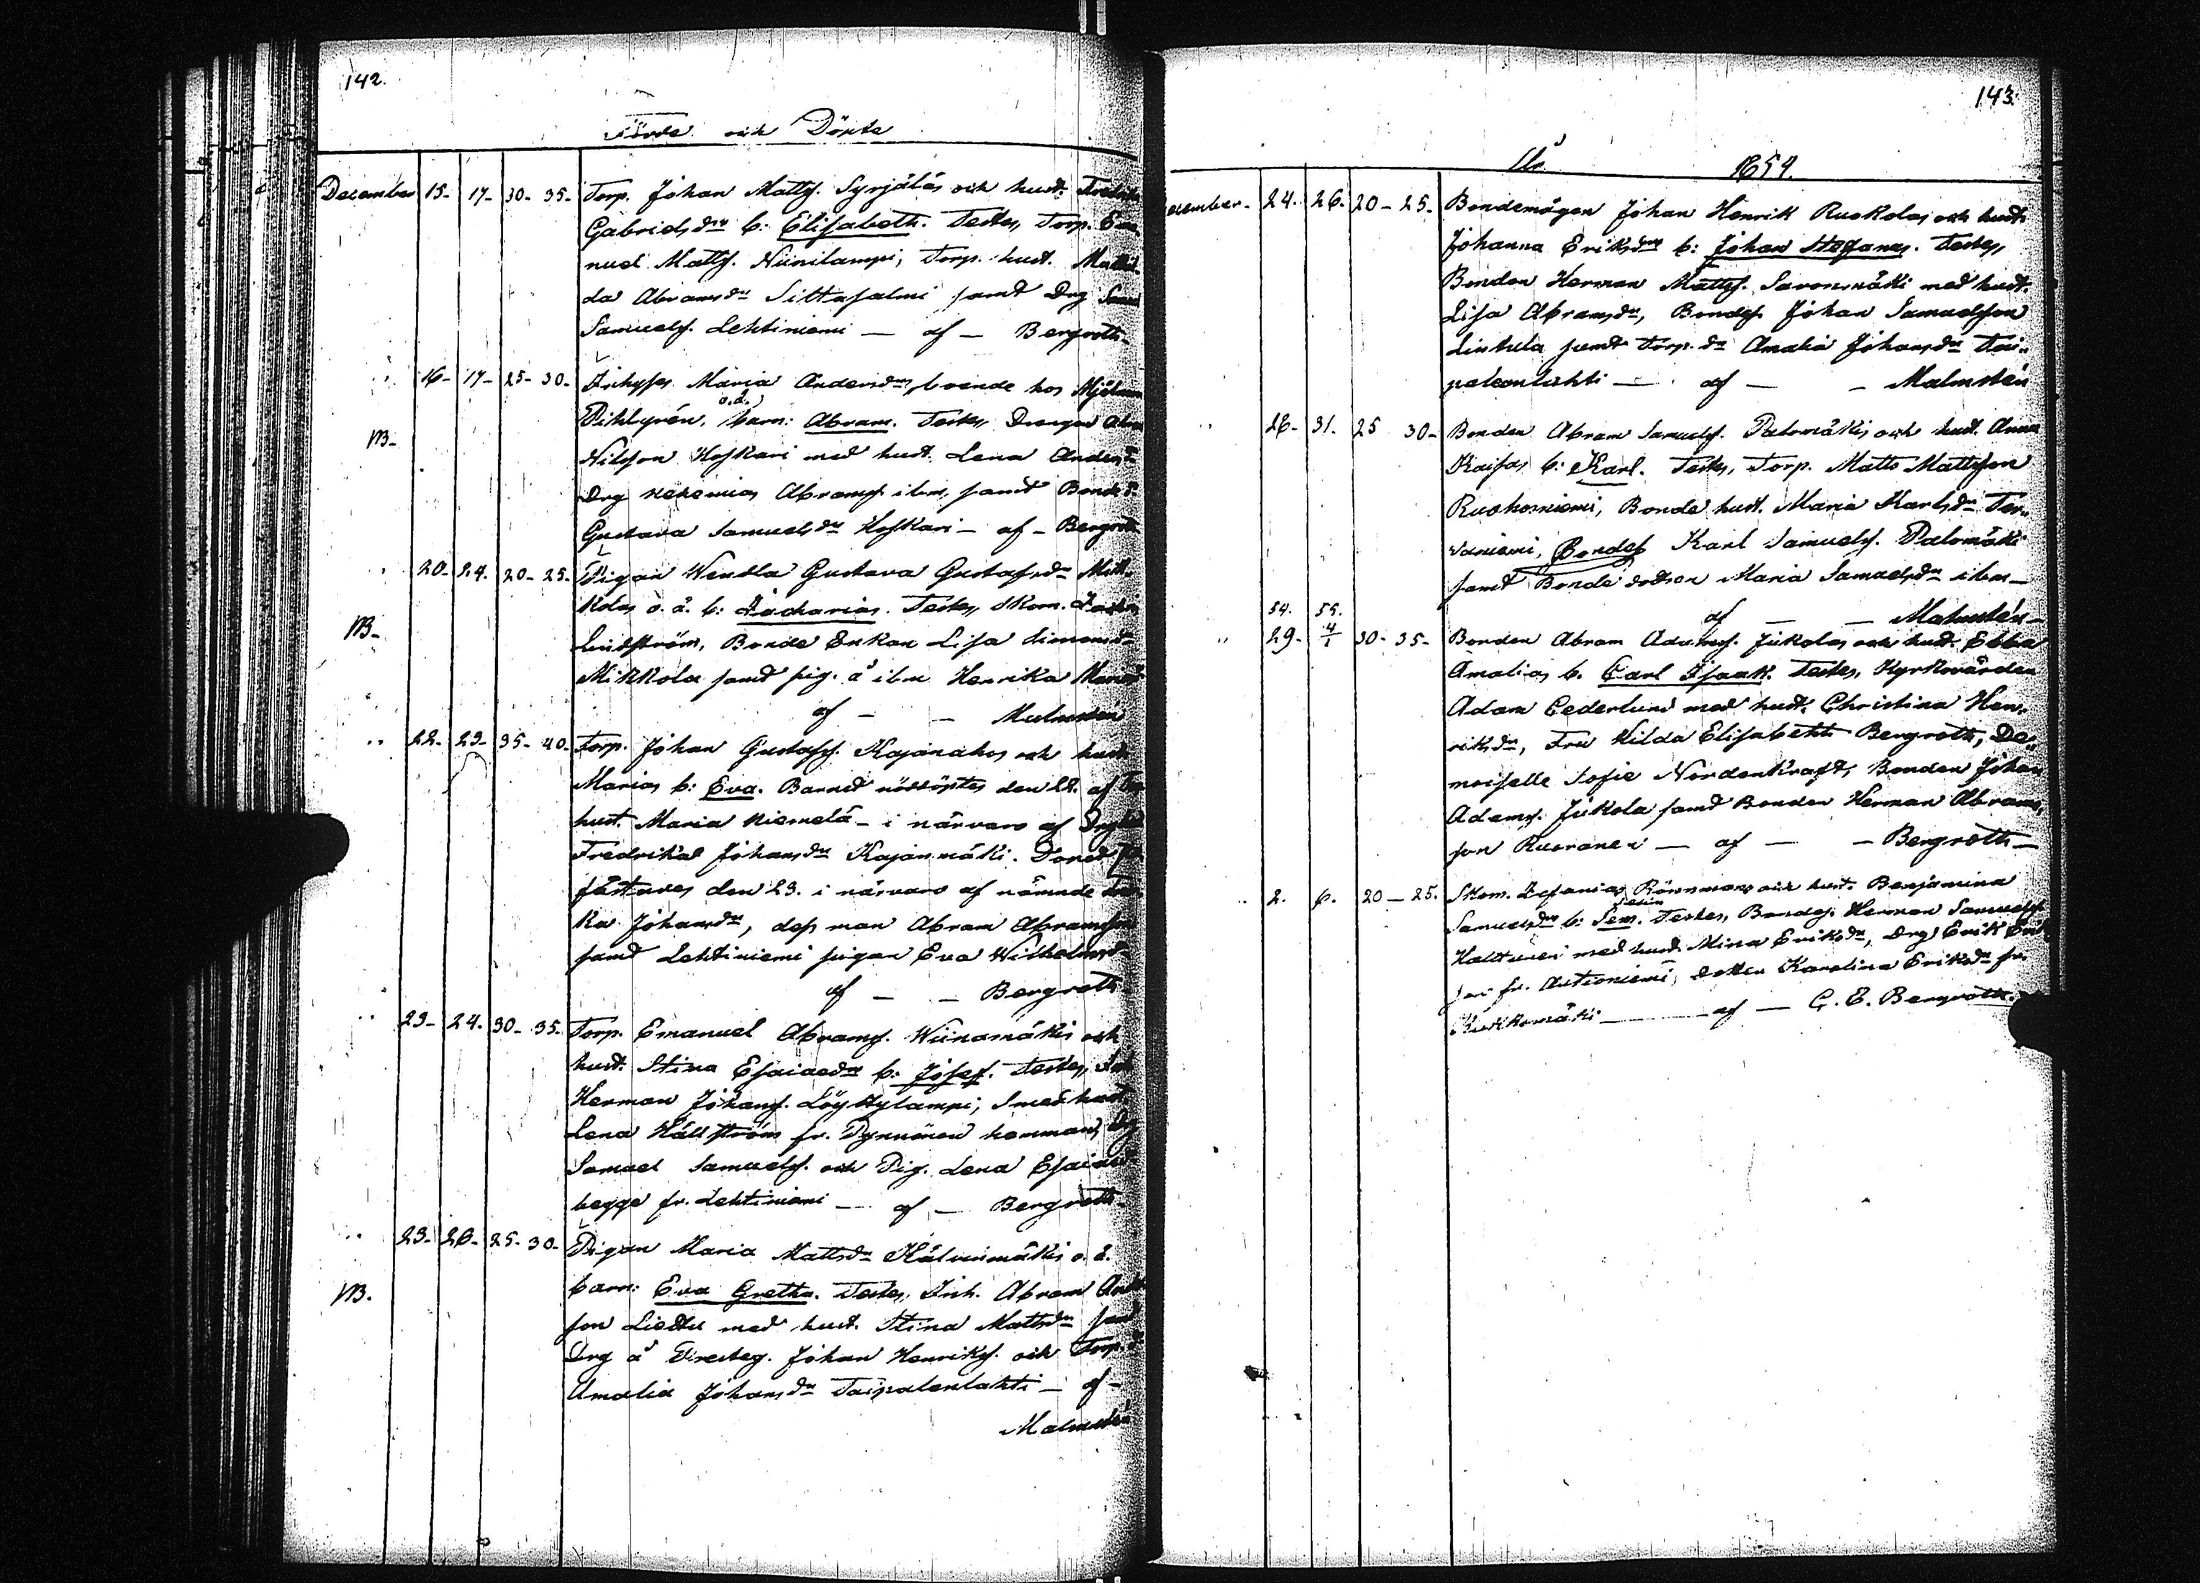 142.
Födde och Döpte
December 15- 17- 30- 35- Torp. Johan Matts. Syrjälä och hust. Fredrika
Gabrielsdr b: Elisabeth. Testes, Torp. Ema
nuel Matts. Niinilampi, Torp. hust. Mathil
da Abramsdr Sittasalmi samt Drg
Samuels. Lehtiniemi — af — Bergroth-
16- 17- 25- 30- Inhyses Maria Andersdr, boende hos
o. ä.
Pihlgrén, barn: Abram. Testes, Drengen
M- Nilsson Koskari med hust. Lena Andersdr
Drg Nehemias Abrams. ibm, samt Bonde dr
Gustava Samuelsdr Koskari - af - Bergroth
20- 24. 20- 25- Pigan Wendla Gustava Gustafsdr Mik
kola o. ä. b: Zacharias. Testes, Skom.
M- Lindström, Bonde Enkan Lisa Simonsdr
Mikkola samt pig. å ibm Henrika
af — — Malmstén
22- 23- 35- 40- Torp. Johan Gustafs. Kajanaho och hust.
Maria b: Eva. Barnet nöddöptes den 22. af
hust. Maria Niemelä - i närvaro af
Fredrika Johansdr Kajanmäki. Dopet
fästades den 23. i närvaro af nämnde
ka Johansdr, dess man Abram Abramsson
samt Lehtiniemi pigan Eva Wilhelmsdr
af — — Bergroth
23- 24. 30- 35. Torp. Emanuel Abrams. Wiinamäki och
hust. Stina Esaiaedr b: Josef. Testes,
Herman Johans. Löyttylampi, Smed hust.
Lena Hällström fr. hemman, Drg
Samuel Samuels. och Pig. Lena Esaiaedr
begge fr. Lehtiniemi — af — Bergroth-
23- 26- 25- 30- Pigan Maria Mattsdr Kälvinmäki o. ä.
M. barn: Eva Gretha. Testes, Inh. Abram
son Liedes med hust. Stina Mattsdr samt
Drg å Johan Henriks. och Torp. dr
Amalia Johansdr Taipalenlahti — af —
Malmstén
143.
År 1854.
December- 24. 26. 20 - 25- Bondemågen Johan Henrik Ruokola och hust.
Johanna Eriksdr b: Johan Stefanus. Testes,
Bonden Herman Matts. Savonmäki med hust.
Lisa Abramsdr, Bondes. Johan Samuelsson
Lintula samt Torp. dr Amalia Johansdr Tai-
palenlahti — af — — Malmstén
26- 31. 25 30- Bonden Abram Samuels. Palomäki och hust. Anna
Kaisa b: Karl. Testes, Torp. Matts Mattsson
Ruohoniemi, Bonde hust. Maria Karlsdr Ter-
vaniemi, Bondes Karl Samuels. Palomäki
samt Bonde dottren Maria Samuelsdr ibm —
af — — Malmstén-
54. 55.
29- 4/1 30- 35- Bonden Abram Adams. Jukola och hust. Ebba
Amalia b. Carl Isaak. Testes, Kyrkovärden
Adam Cederlund med hust. Christina Hen-
riksdr, Fru Hilda Elisabeth Bergroth, De-
moiselle Sofie Nordenkraft, Bonden Johan
Adams. Jukola samt Bonden Herman Abrams-
son Ruoranen — af — — Bergroth —
2. 6. 20 — 25. Skom. Zefanias Rönnman och hust. Benjamina
Samuelsdr b: Sem. Testes, Bondes. Herman Samuels.
Haltunen med hust. Mina Eriksdr, Drg Erik
fr. Autioniemi, dotter Karolina Eriksdr fr.
Kukkomäki — af — G. E. Bergroth.